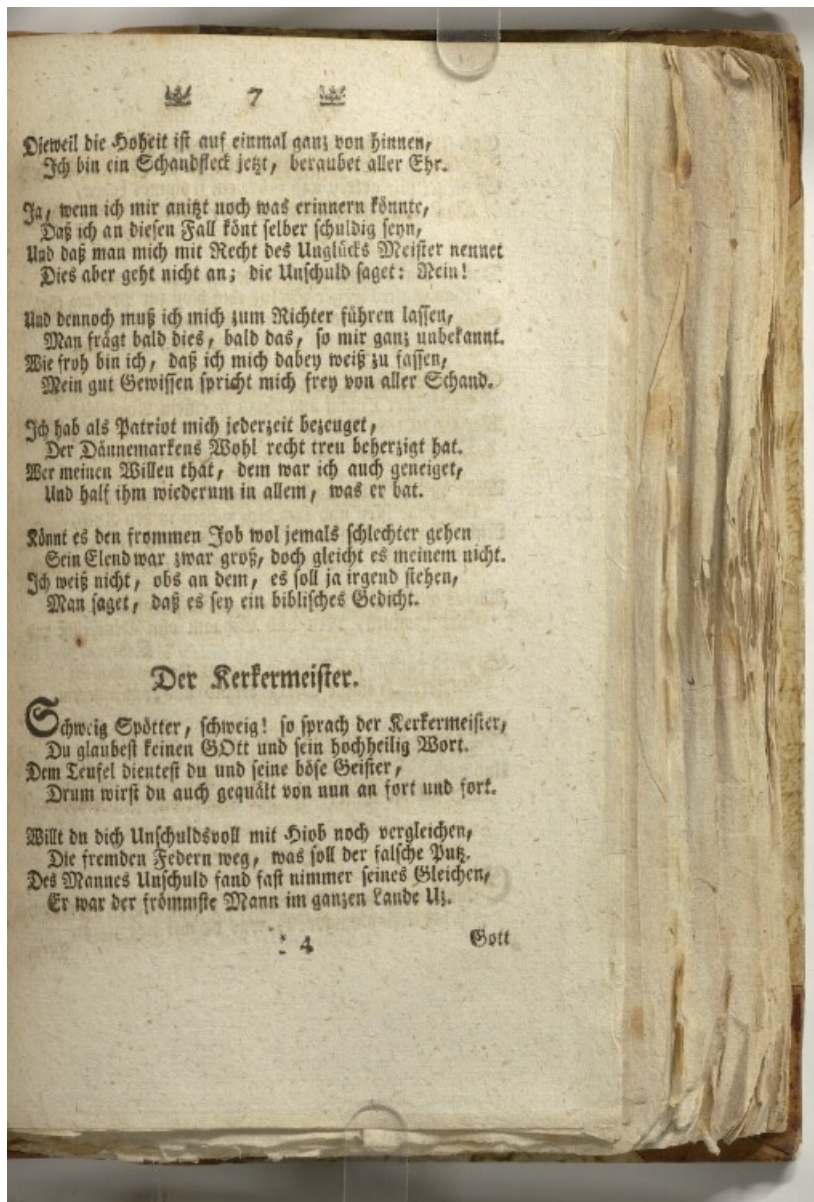 7
Dieweil die Hoheit ist auf einmal ganz von hinnen,
Ich bin ein Schandfleck jetzt, beraubet aller Ehr.
Ja, wenn ich mir anitzt noch was erinnern könnte,
Daß ich an diesen Fall könt selber schuldig seyn,
Und daß man mich mit Recht des Unglücks Meister nennet
Dies aber geht nicht an; die Unschuld saget: Nein!
Und dennoch muß ich mich zum Richter führen lassen,
Man frägt bald dies, bald das, so mir ganz unbekannt.
Wie froh bin ich, daß ich mich dabey weiß zu fassen,
Mein gut Gewissen spricht mich frey von aller Schand.
Ich hab als Patriot mich jederzeit bezeuget,
Der Dännemarkens Wohl recht treu beherzigt hat.
Wer meinen Willen that, dem war ich auch geneiget,
Und half ihm wiederum in allem, was er bat.
Könnt es den frommen Job wol jemals schlechter gehen
Sein Elend war zwar groß, doch gleicht es meinem nicht.
Ich weiß nicht, obs an dem, es soll ja irgend stehen,
Man saget, daß es sey ein biblisches Gedicht.
Der Kerkermeister.
Schweig Spötter, schweig! so sprach der Kerkermeister,
Du glaubest keinen GOtt und sein hochheilig Wort.
Dem Teufel dientest du und seine böse Geister,
Drum wirst du auch gequält von nun an fort und fort.
Willt du dich Unschuldsvoll mit Hiob noch vergleichen,
Die fremden Federn weg, was soll der falsche Putz.
Des Mannes Unschuld fand fast nimmer seines Gleichen,
Er war der frömmste Mann im ganzen Lande Uz.
: 4 Gott